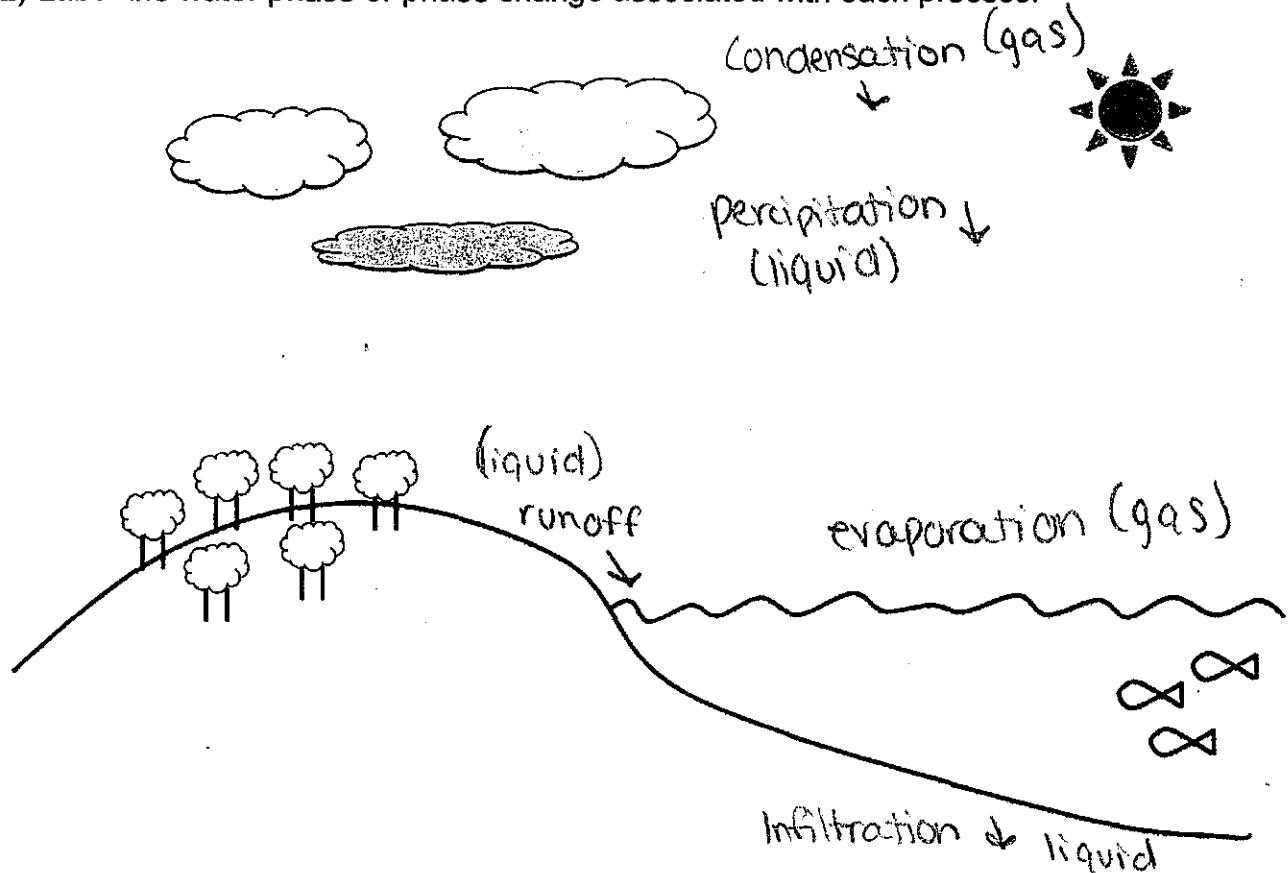 the water phase or phase change associated with each process.
Condensation (gas)
percipitation
(liquid)
(liquid)
runoff
evaporation (gas)
Infiltration liquid